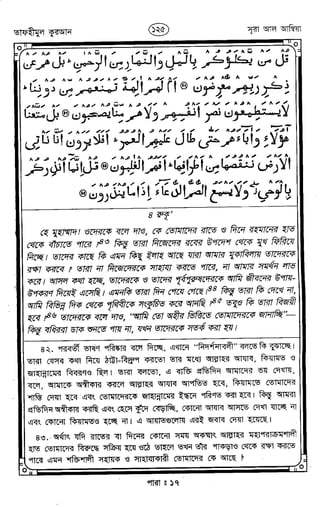 তাফহীমুল কুরআন
১২৫
সূরা আল আম্বিয়া
قُلْ مَنْ يَكْلَؤُكُمْ بِالَّيْلِ وَالنَّهَارِ مِنَ الرَّحْمٰنِ بَلْ هُمْ عَنْ
ذِكْرِ رَبِّهِمْ مُعْرِضُونَ ﴿٤٢﴾ أَمْ لَهُمْ آلِهَةٌ تَمْنَعُهُمْ مِنْ دُونِنَا
لَا يَسْتَطِيعُونَ نَصْرَ أَنْفُسِهِمْ وَلَا هُمْ مِنَّا يُصْحَبُونَ ﴿٤٣﴾ بَلْ مَتَّعْنَا
هٰؤُلَاءِ وَآبَاءَهُمْ حَتَّى طَالَ عَلَيْهِمُ الْعُمُرُ أَفَلَا يَرَوْنَ أَنَّا نَأْتِي
الْأَرْضَ نَنْقُصُهَا مِنْ أَطْرَافِهَا أَفَهُمُ الْغَالِبُونَ ﴿٤٤﴾ قُلْ إِنَّمَا أُنْذِرُكُمْ
بِالْوَحْيِ وَلَا يَسْمَعُ الصُّمُّ الدُّعَاءَ إِذَا مَا يُنْذَرُونَ ﴿٤٥﴾
৪ রুকূ'
হে মুহাম্মাদ! ওদেরকে বলে দাও, কে তোমাদের রাতে ও দিনে রহমানের হাত
থেকে বাঁচাতে পারে?৪৩ কিন্তু তারা নিজেদের রবের উপদেশ থেকে মুখ ফিরিয়ে
নিচ্ছে। তাদের কাছে কি এমন কিছু ইলাহ আছে যারা আমার মুকাবিলায় তাদেরকে
রক্ষা করবে? তারা না নিজেদেরকে সাহায্য করতে পারে, না আমার সমর্থন লাভ
করে। আসল কথা হচ্ছে, তাদেরকে ও তাদের পূর্বপুরুষদেরকে আমি জীবনের উপায়-
উপকরণ দিয়েই এসেছি। এমনকি তারা দিন পেয়ে গেছে।৪৪ কিন্তু তারা কি দেখে না,
আমি বিভিন্ন দিক থেকে পৃথিবীকে সংকুচিত করে আনছি?৪৫ তবুও কি তারা বিজয়ী
হবে?৪৬ তাদেরকে বলে দাও, “আমি তো অহীর ভিত্তিতে তোমাদেরকে জানাচ্ছি”—
কিন্তু বধিররা ডাক শুনতে পায় না, যখন তাদেরকে সতর্ক করা হয়।
৪২. পরবর্তী ভাষণ পরিষ্কার বলে দিচ্ছে, এখানে “নিদর্শনাবলী” বলতে কি বুঝাচ্ছে।
তারা যেসব কথা নিয়ে ঠাট্টা-বিদ্রূপ করতো তার মধ্যে আল্লাহর আযাব, কিয়ামত ও
জাহান্নামের বিবরণও ছিল। তারা বলতো, এ ব্যক্তি প্রতিদিন আমাদের ভয় দেখায়,
বলে, আমাকে অস্বীকার করলে আল্লাহর আযাব আপতিত হবে, কিয়ামতে তোমাদের
শাস্তি দেয়া হবে এবং তোমাদেরকে জাহান্নামের ইন্ধনে পরিণত করা হবে। কিন্তু আমরা
প্রতিদিন অস্বীকার করছি এবং হেসে কুঁদে বেড়াচ্ছি, কোনো আযাব আসতে দেখা যাচ্ছে না
এবং কোনো কিয়ামতও হচ্ছে না। এ আয়াতগুলোয় এরই জবাব দেয়া হয়েছে।
৪৩. অর্থাৎ যদি রাতের বা দিনের কোনো সময় অকস্মাৎ আল্লাহর মহাপরাক্রমশালী
হাত তোমাদের বিরুদ্ধে সক্রিয় হয়ে ওঠে তাহলে তখন তাঁর পাকড়াও থেকে রক্ষা করতে
পারে এমন শক্তিশালী সহায়ক ও সাহায্যকারী তোমাদের কে আছে?
পারা : ১৭